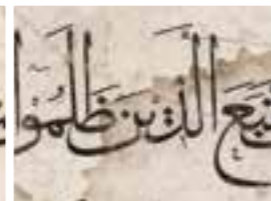 تبع الذين ظلموا